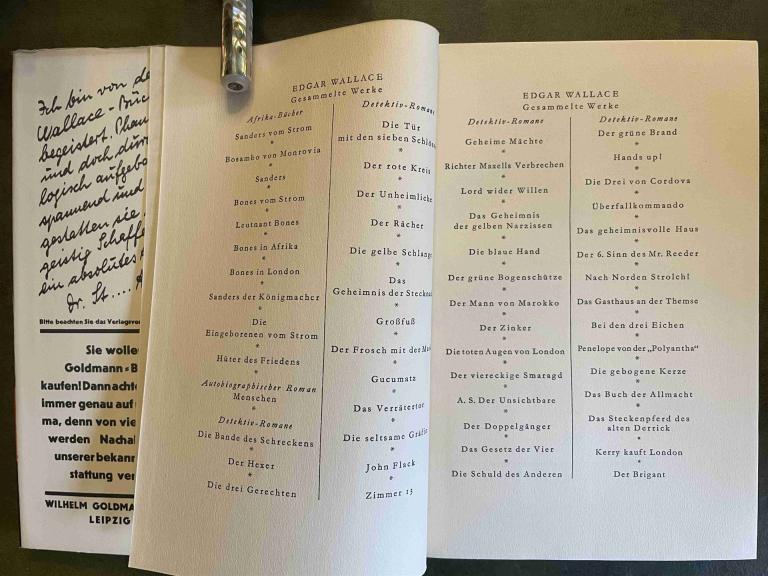 Ich bin von de
Wallace-Büc
begeistert.
und doch
logisch aufgeba
spannend und
gestatten sie
geistig Schaffe
ein absolutes
Dr. St....
Bitte beachten Sie das Verlagsver
Sie wolle
Goldmann-B
kaufen! Dann achte
immer genau auf
ma, denn von vie
werden Nachal
unserer bekan
stattung ver
WILHELM GOLDMA
LEIPZIG
EDGAR WALLACE
Gesammelte Werke
Afrika-Bücher
Sanders vom Strom
*
Bosambo von Monrovia
*
Sanders
*
Bones vom Strom
*
Leutnant Bones
*
Bones in Afrika
*
Bones in London
*
Sanders der Königmacher
*
Die
Eingeborenen vom Strom
*
Hüter des Friedens
*
Autobiographischer Roman
Menschen
*
Detektiv-Romane
Die Bande des Schreckens
*
Der Hexer
*
Die drei Gerechten
Detektiv-Romane
Die Tür
mit den sieben Schlös
*
Der rote Kreis
*
Der Unheimliche
*
Der Rächer
*
Die gelbe Schlange
*
Das
Geheimnis der Stecknad
*
Großfuß
*
Der Frosch mit der Mas
*
Gucumatz
*
Das Verrätertor
*
Die seltsame Gräfin
*
John Flack
*
Zimmer 13
EDGAR WALLACE
Gesammelte Werke
Detektiv-Romane
Geheime Mächte
*
Richter Maxells Verbrechen
*
Lord wider Willen
*
Das Geheimnis
der gelben Narzissen
*
Die blaue Hand
*
Der grüne Bogenschütze
*
Der Mann von Marokko
*
Der Zinker
*
Die toten Augen von London
*
Der viereckige Smaragd
*
A. S. Der Unsichtbare
*
Der Doppelgänger
*
Das Gesetz der Vier
*
Die Schuld des Anderen
Detektiv-Romane
Der grüne Brand
*
Hands up!
*
Die Drei von Cordova
*
Überfallkommando
*
Das geheimnisvolle Haus
*
Der 6. Sinn des Mr. Reeder
*
Nach Norden Strolch!
*
Das Gasthaus an der Themse
*
Bei den drei Eichen
*
Penelope von der „Polyantha“
*
Die gebogene Kerze
*
Das Buch der Allmacht
*
Das Steckenpferd des
alten Derrick
*
Kerry kauft London
*
Der Brigant